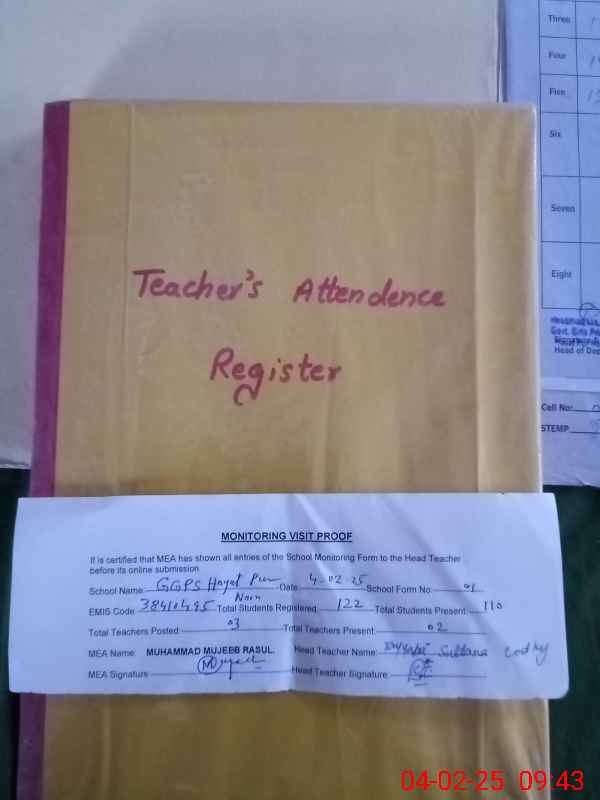 Three
Four
Five
Six
Seven
Eight
Head of Dep
Cell No:
STEMP
Teacher's Attendence
Register
MONITORING VISIT PROOF
It is certified that MEA has shown all entries of the School Monitoring Form to the Head Teacher
before its online submission
School Name: GGPS Hayat Pur Noon Date 4-02-25 School Form No. 01
EMIS Code: 38410495 Total Students Registered 122 Total Students Present 110
Total Teachers Posted 03 Total Teachers Present 02
MEA Name: MUHAMMAD MUJEEB RASUL. Head Teacher Name: Sultana
MEA Signature Mujeeb Head Teacher Signature
04-02-25 09:43